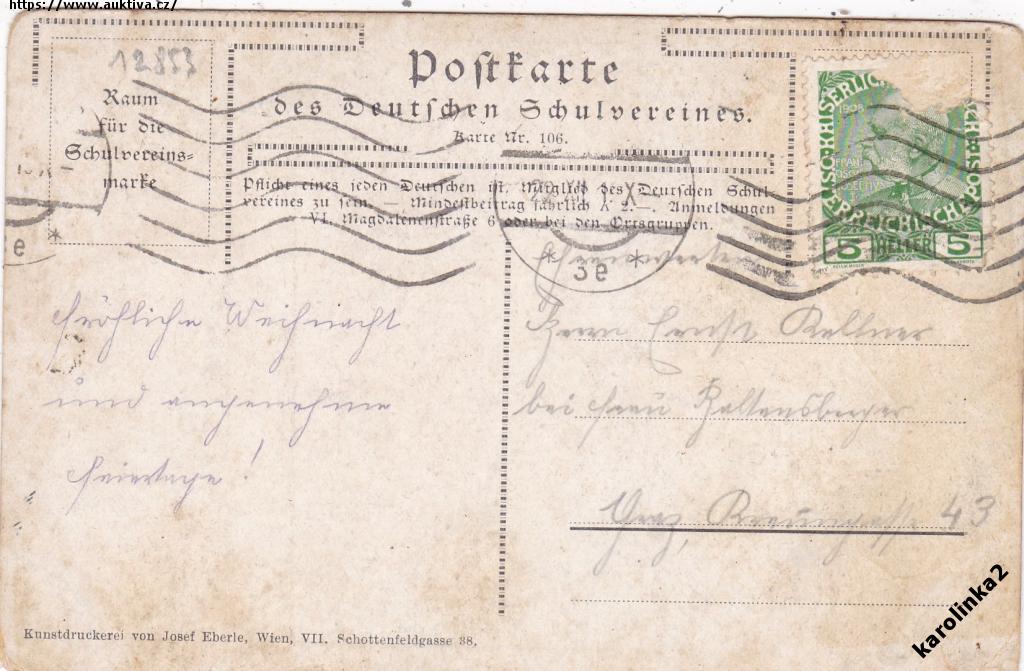 https://www.auktiva.cz/
12853
Raum
für die
Schulvereins=
marke
Postkarte
des Deutschen Schulvereines.
Karte Nr. 106.
Pflicht eines jeden Deutschen ist, Mitglied des Deutschen Schul-
vereines zu sein. — Mindestbeitrag jährlich K 2.—. Anmeldungen
VI. Magdalenenstraße 6 oder bei den Ortsgruppen.
1908
5 HELLER 5
* 3e *
e *
Fröhliche Weihnacht
und angenehme
Feiertage!
Herrn Ernst Kellner
bei Frau Kaltensberger
Graz, 43
Kunstdruckerei von Josef Eberle, Wien, VII. Schottenfeldgasse 38.
karolinka2